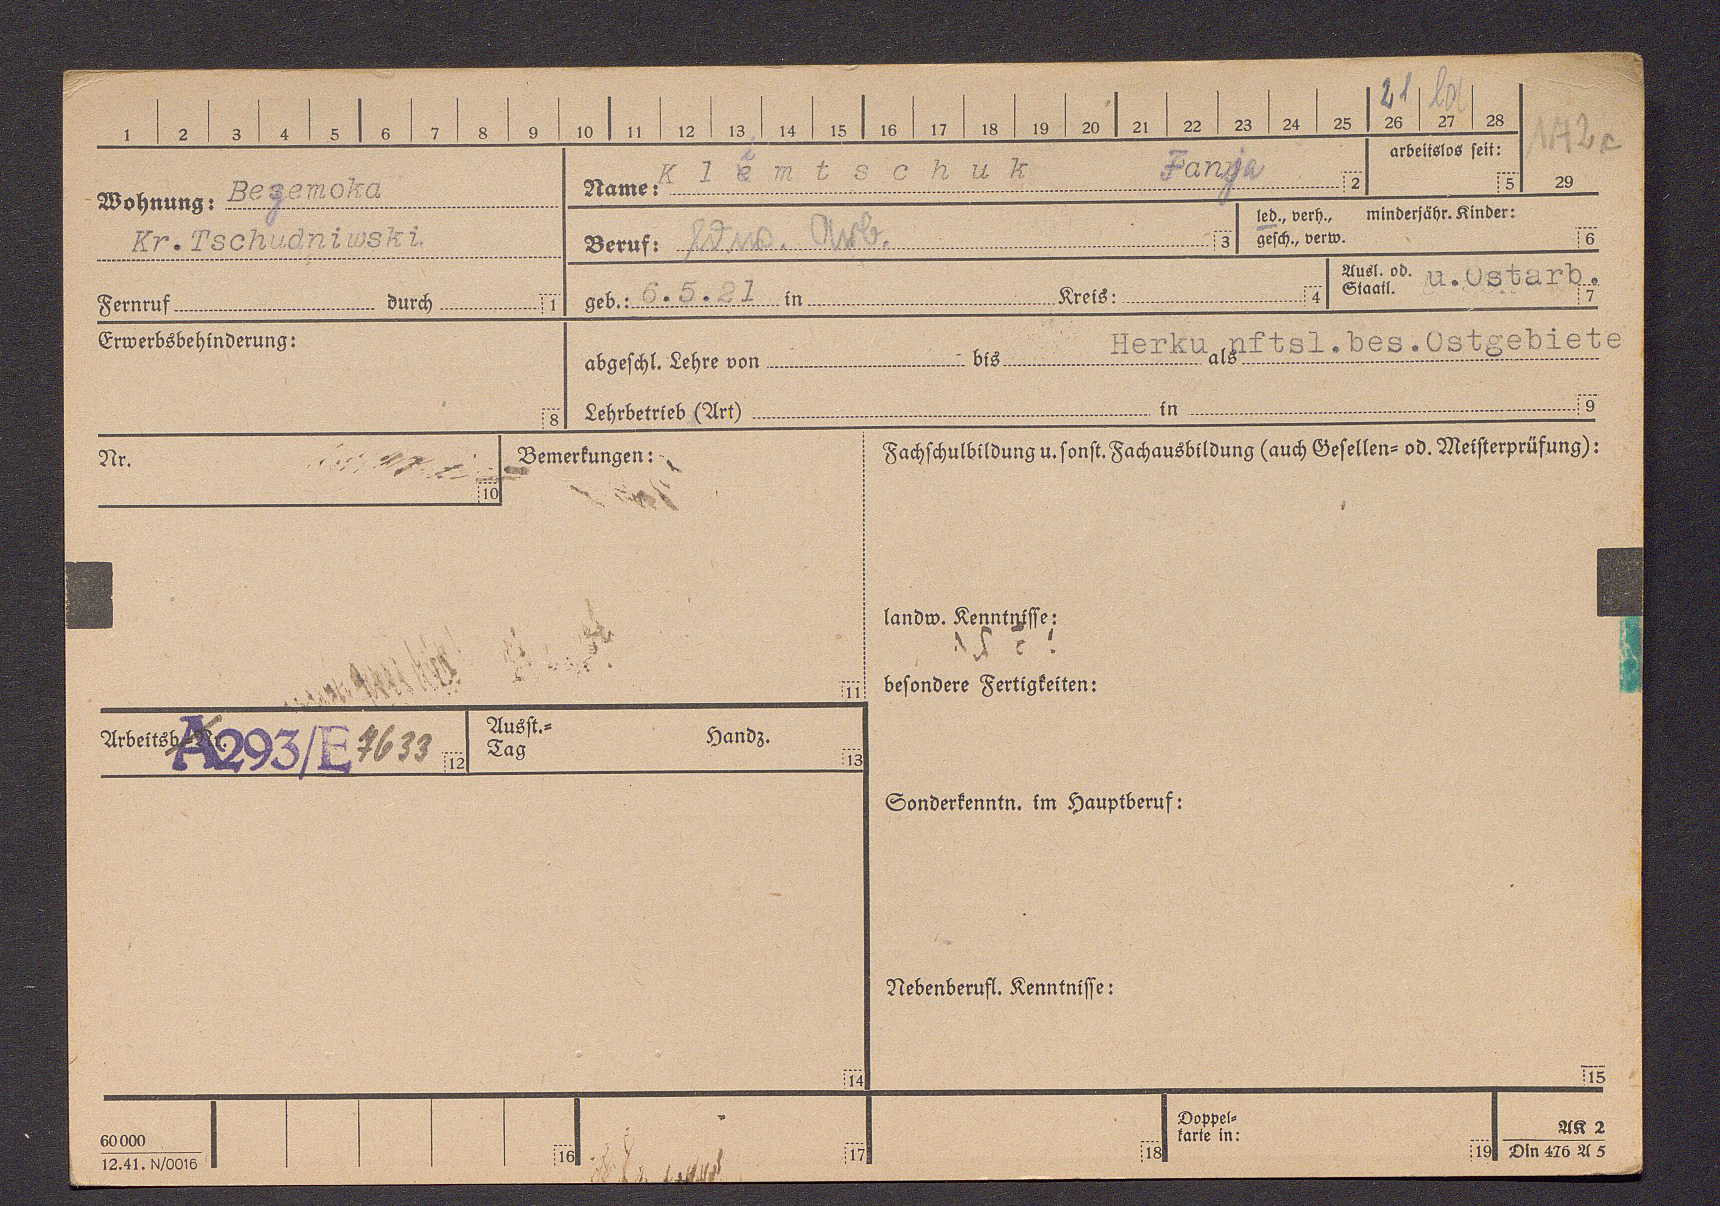 21
1 2 3 4 5 6 7 8 9 10 11 12 13 14 15 16 17 18 19 20 21 22 23 24 25 26 27 28
172c
29
Wohnung: Begemoka
Kr. Tschudniwski
Name: Klemtschuk Fanja 2
arbeitslos seit: 5
Beruf: Arb. 3
led., verh., gesch., verw.
minderjähr. Kinder: 6
Fernruf durch 1
geb.: 6.5.21 in Kreis: 4
Ausl. od. Staatl. u.Ostarb. 7
Erwerbsbehinderung: 8
Herkunftsl.bes.Ostgebiete
abgeschl. Lehre von bis als
Lehrbetrieb (Art) in 9
Nr. 10
Bemerkungen: 11
Fachschulbildung u. sonst. Fachausbildung (auch Gesellen- od. Meisterprüfung):
landw. Kenntnisse:
besondere Fertigkeiten:
Arbeitsb.-Nr. A293/E 7633 12
Ausst.-Tag Handz. 13
Sonderkenntn. im Hauptberuf:
Nebenberufl. Kenntnisse:
14
15
60 000
12.41. N/0016
16 17 18
Doppelkarte in: 19
AK 2
Din 476 A 5